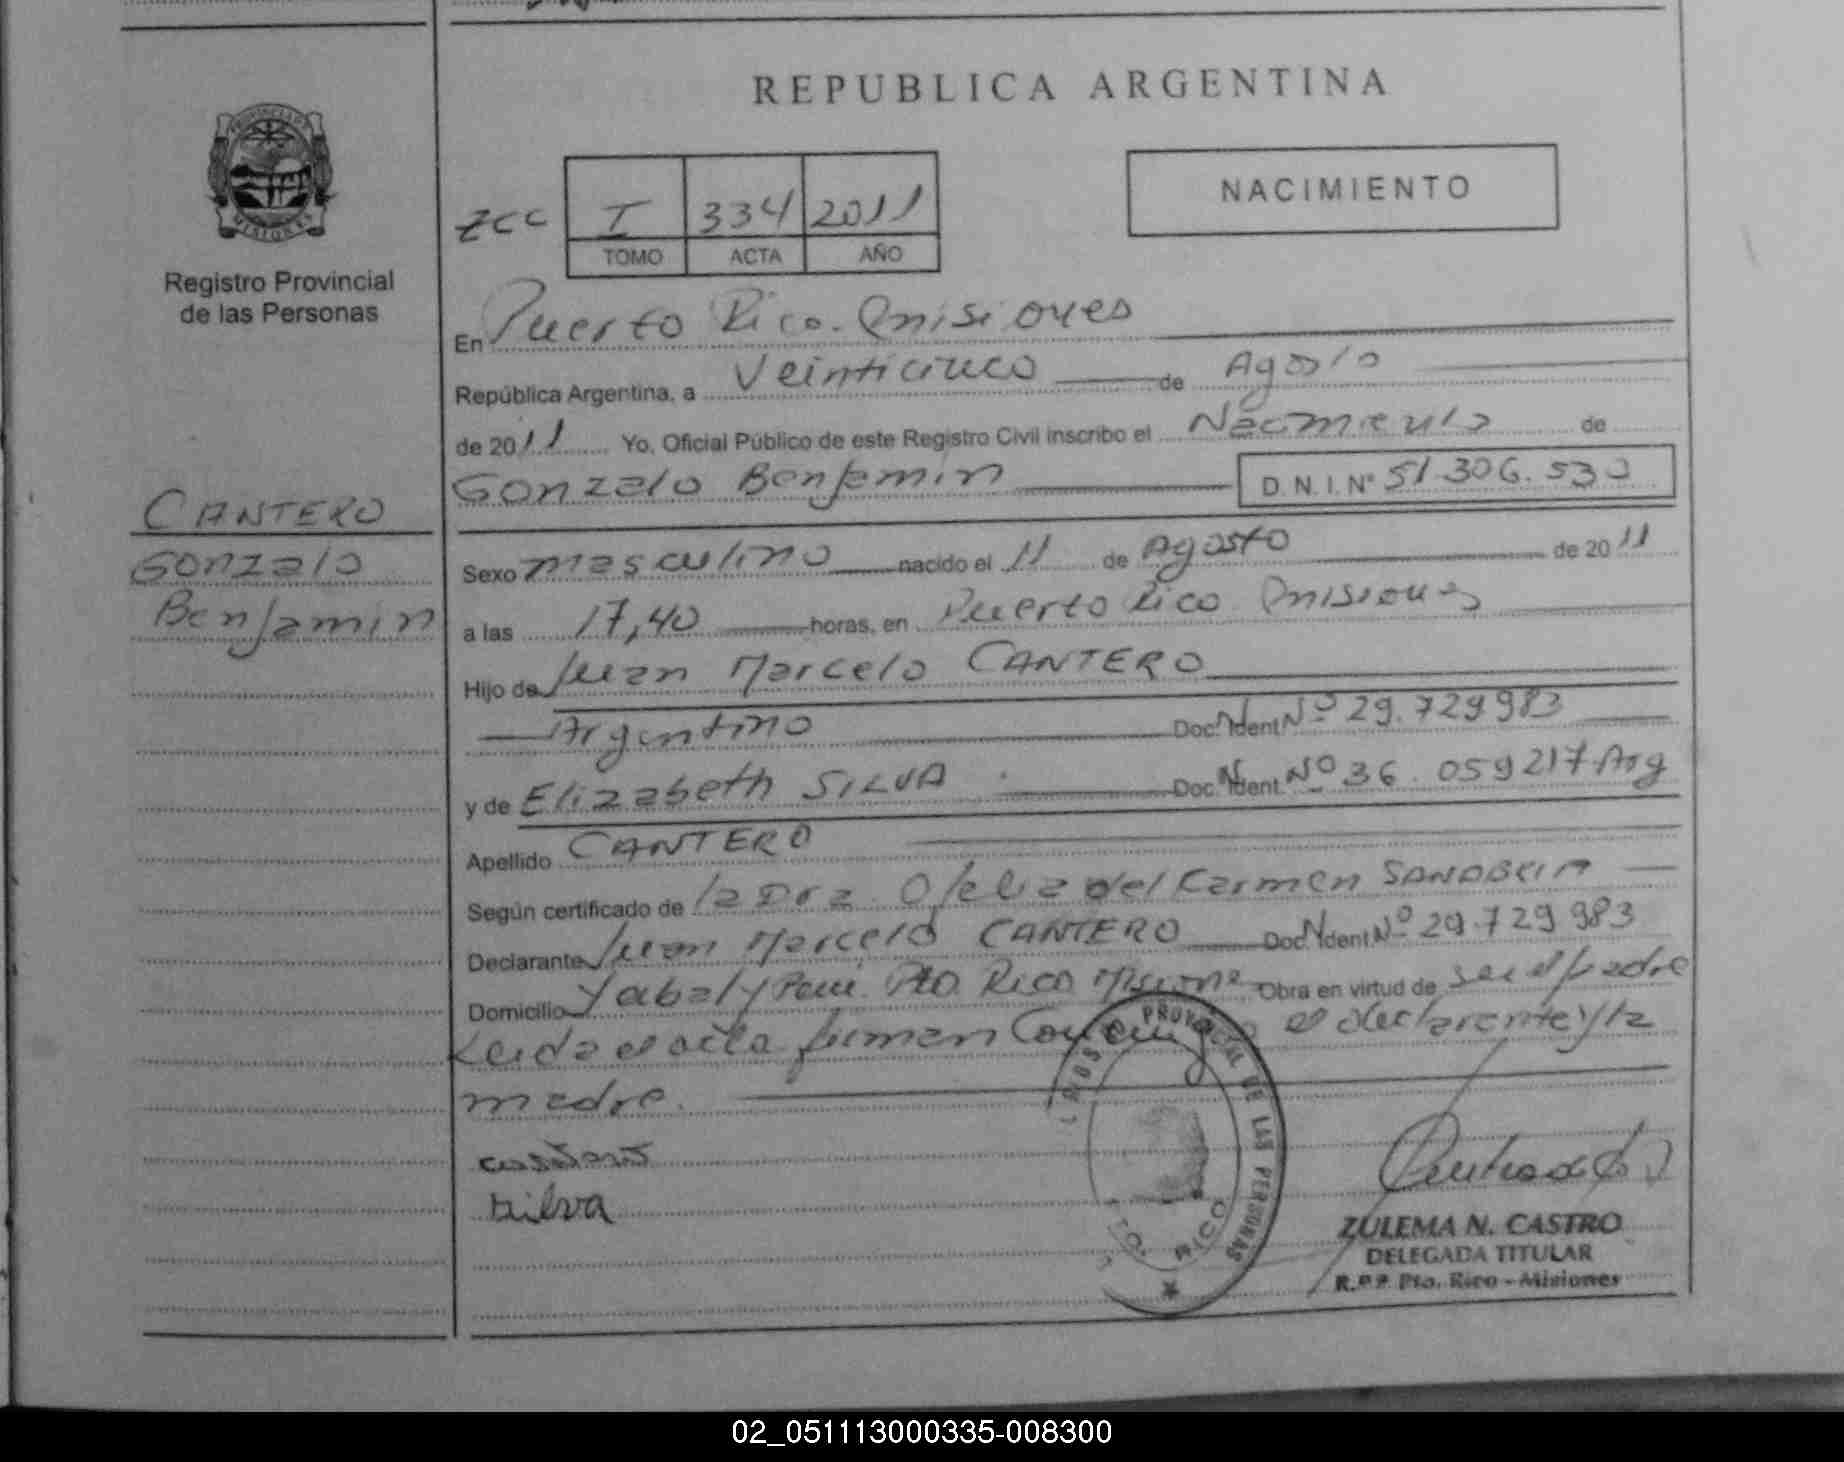 REPUBLICA ARGENTINA
PROVINCIA DE
MISIONES
Registro Provincial
de las Personas
NACIMIENTO
ZCC I 334 2011
TOMO ACTA AÑO
En Puerto Rico. Misiones
República Argentina, a Veinticinco de Agosto
de 2011 Yo, Oficial Público de este Registro Civil inscribo el Nacimiento de
Gonzalo Benjamin D.N.I.Nº 51.306.530
CANTERO
Gonzalo
Benjamin
Sexo masculino nacido el 11 de Agosto de 2011
a las 17,40 horas, en Puerto Rico Misiones
Hijo de Juan Marcelo CANTERO
Argentino Doc. Ident Nº 29.729983
y de Elizabeth SILVA Doc. Ident. Nº 36.059217 Arg
Apellido CANTERO
Según certificado de la Dra. Ofelia del Carmen
Declarante Juan Marcelo CANTERO Doc. Ident Nº 29.729983
Domicilio Pto. Rico Obra en virtud de ser el padre
Leida el acta firman el declarante y la
madre.
Silva
REGISTRO PROVINCIAL DE LAS PERSONAS
PTO. RICO
ZULEMA N. CASTRO
DELEGADA TITULAR
R.P.P. Pto. Rico - Misiones
02_051113000335-008300